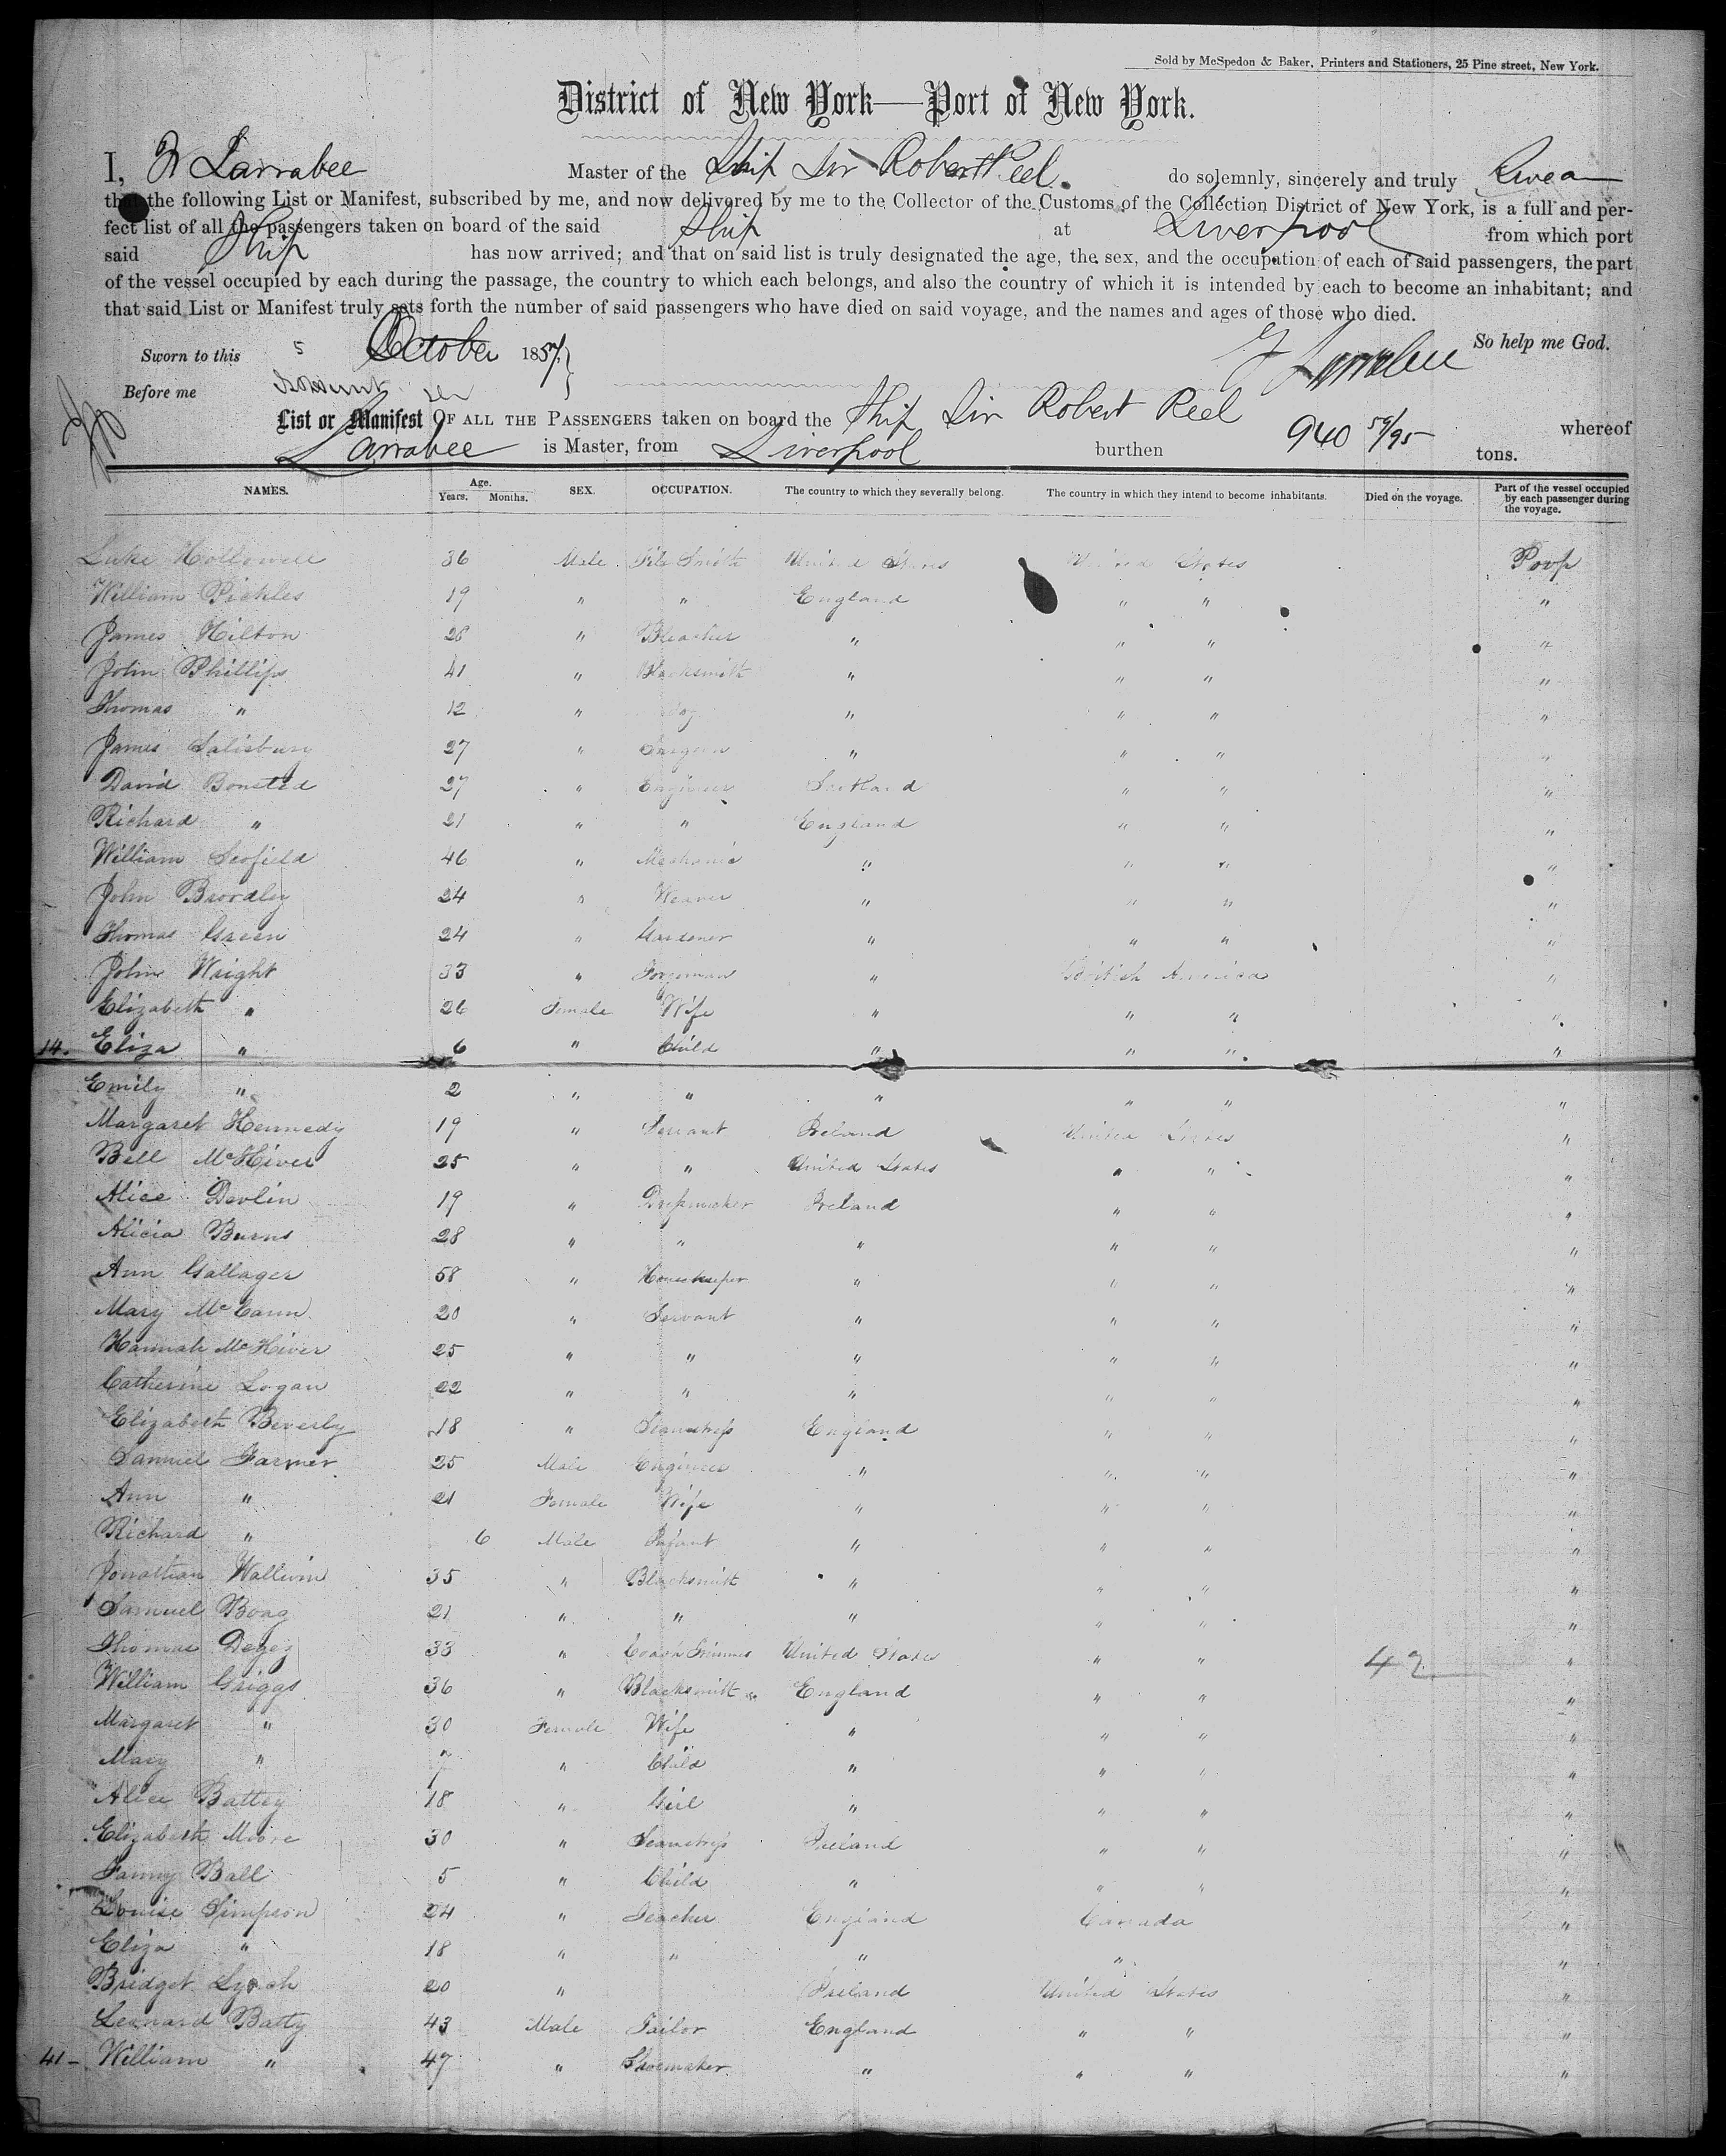 Sold by McSpedon & Baker, Printers and Stationers, 25 Pine street, New York.
District of New York—Port of New York.
I, Larrabee Master of the Ship Sir Robert Peel. do solemnly, sincerely and truly Swear
that the following List or Manifest, subscribed by me, and now delivered by me to the Collector of the Customs of the Collection District of New York, is a full and per-
fect list of all the passengers taken on board of the said Ship at Liverpool from which port
said Ship has now arrived; and that on said list is truly designated the age, the sex, and the occupation of each of said passengers, the part
of the vessel occupied by each during the passage, the country to which each belongs, and also the country of which it is intended by each to become an inhabitant; and
that said List or Manifest truly sets forth the number of said passengers who have died on said voyage, and the names and ages of those who died.
So help me God.
Sworn to this 5 October 1857 Larrabee
Before me
List or Manifest OF ALL THE PASSENGERS taken on board the Ship Sir Robert Peel whereof
Larrabee is Master, from Liverpool burthen 940 59/95 tons.
NAMES. Age. Years. Months. SEX. OCCUPATION. The country to which they severally belong. The country in which they intend to become inhabitants. Died on the voyage. Part of the vessel occupied by each passenger during the voyage.
Luke Hollowell 36 Male File Smith United States United States Poop
William Pickles 19 " " England " " "
James Hilton 26 " Bleacher " " " "
John Phillips 41 " Blacksmith " " " "
Thomas " 12 " Boy " " " "
James Salisbury 27 " Surgeon " " " "
David Bonsted 27 " Engineer Scotland " " "
Richard " 21 " " England " " "
William Scofield 46 " Mechanic " " " "
John Brordley 24 " Weaver " " " "
Thomas Green 24 " Gardener " " " "
John Wright 33 " Foreman " British America "
Elizabeth " 26 Female Wife " " " "
14. Eliza " 6 " Child " " " "
Emily " 2 " " " " " "
Margaret Kennedy 19 " Servant Ireland United States "
Bell McKiver 25 " " United States " " "
Alice Devlin 19 " Dressmaker Ireland " " "
Alicia Burns 28 " " " " " "
Ann Gallager 58 " Housekeeper " " " "
Mary McCann 20 " Servant " " " "
Hannah McKiver 25 " " " " " "
Catherine Logan 22 " " " " " "
Elizabeth Beverly 18 " Seamstress England " " "
Samuel Farmer 25 Male Engineer " " " "
Ann " 21 Female Wife " " " "
Richard " 6 Male Infant " " " "
Jonathan Wallwin 35 " Blacksmith " " " "
Samuel Boag 21 " " " " " "
Thomas 33 " Coach Trimmer United States " " "
42
William Griggs 36 " Blacksmith England " " "
Margaret " 30 Female Wife " " " "
Mary " 7 " Child " " " "
Alice Battey 18 " Girl " " " "
Elizabeth Moore 30 " Seamstress Ireland " " "
Fanny Ball 5 " Child " " " "
Louise Simpson 24 " Teacher England Canada "
Eliza " 18 " " " " "
Bridget Lynch 20 " Ireland United States "
Leonard Batty 43 Male Tailor England " " "
41 - William " 47 " Shoemaker " " " "